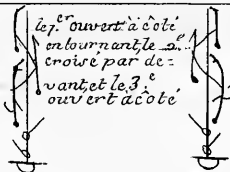 le 1.er ouvert à côté
en tournant, le 2.e
croisé par de=
vant, et le 3.e
ouvert à côté